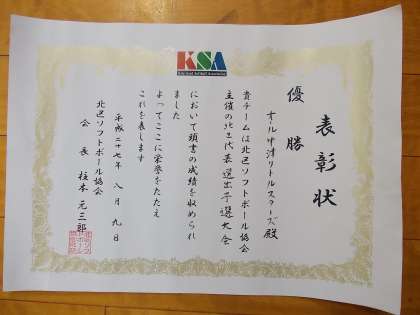 KSA
表彰状
優勝
オール中津リトルスターズ殿
貴チームは北区ソフトボール協会
主催の北区代表選出予選大会
において頭書の成績を収められ
ました
よってここに栄誉をたたえ
これを表します
平成二十七年 八月 九日
北区ソフトボール協会
会長 柱本元三郎